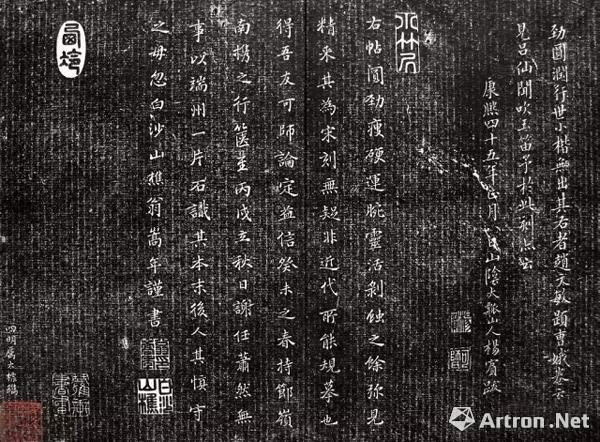 劲圆润行世小楷無出其右者趙文敏跋曹娥卷云
見吕仙聞吹玉笛予於此刻亦云
康熙四十五年正月八日山陰大瓢山人楊賓跋
右帖圓劲瘦硬運腕靈活剝蝕之餘弥見
精采其為宋刻無疑非近代所能規摹也
得吾友可師論定益信癸未之春持節嶺
南携之行篋至丙戌立秋日謝任蕭然無
事以端州一片石識其本末後人其慎守
之毋忽白沙山樵翁嵩年謹書
四明属太格鐫
Artron.Net